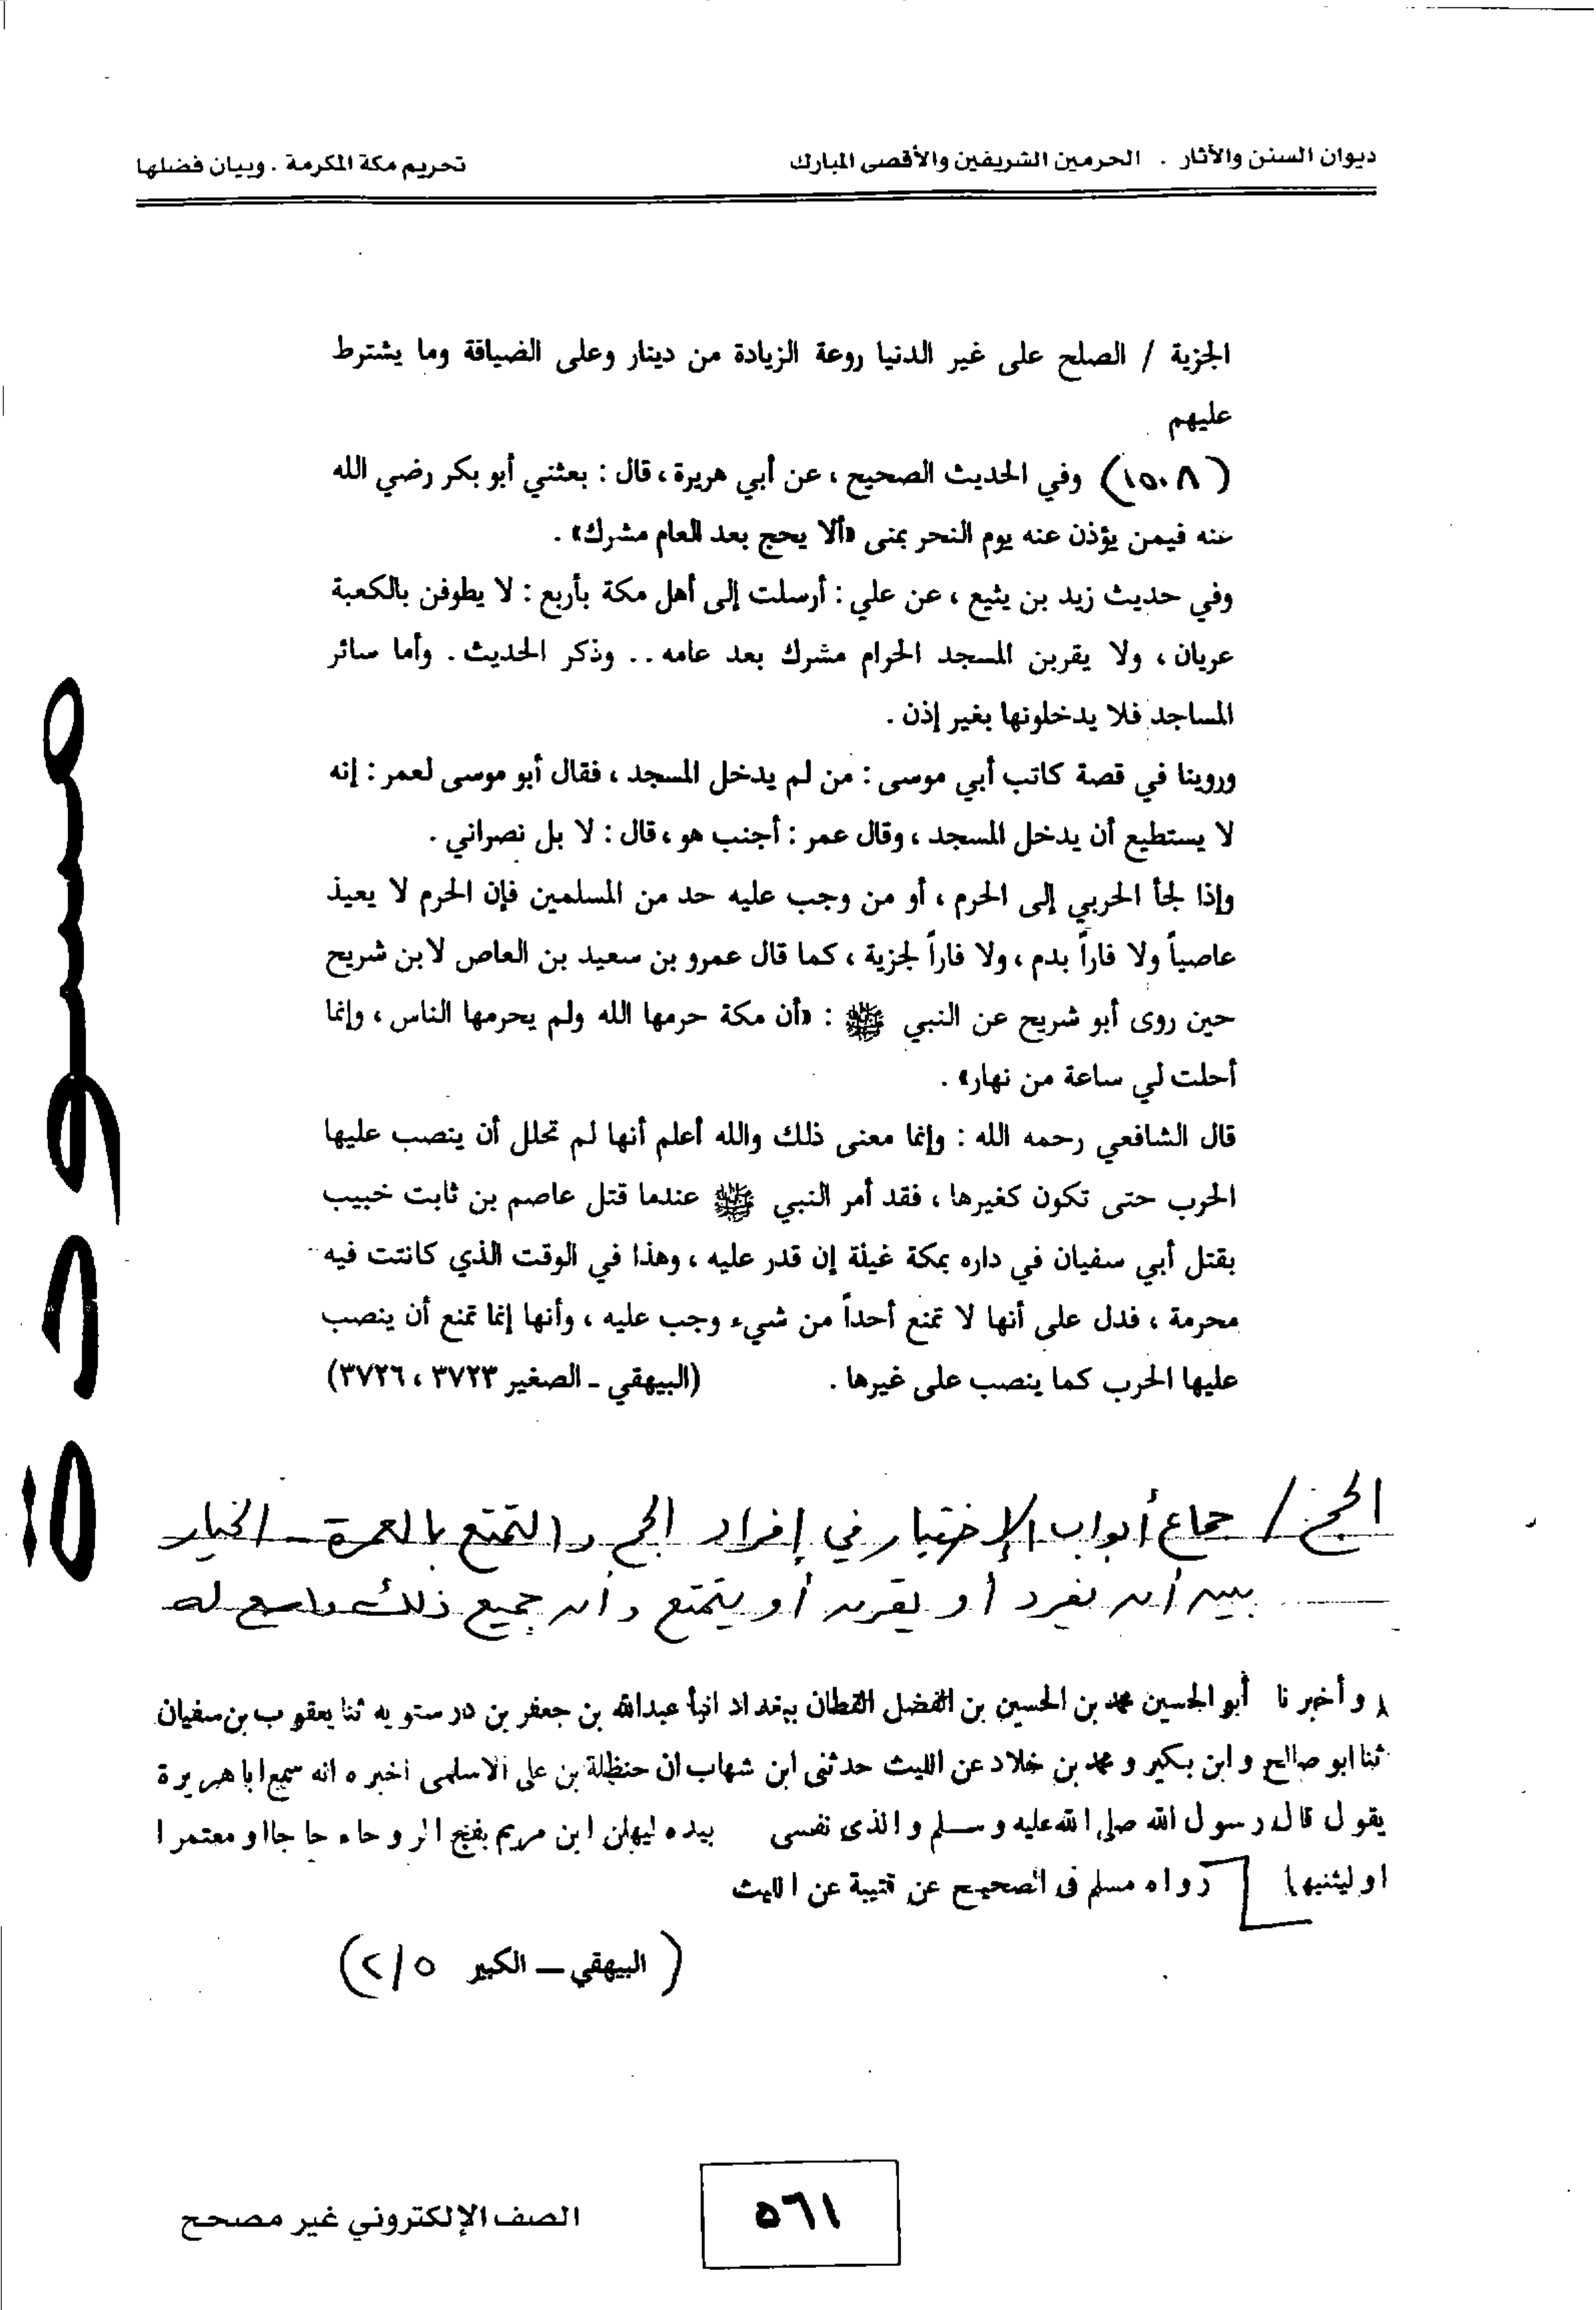 ديوان السنن والآثار . الحرمين الشريفين والأقصى المبارك
تحريم مكة المكرمة . وبيان فضلها
الجزية / الصلح على غير الدنيا روعة الزيادة من دينار وعلى الضيافة وما يشترط
عليهم
(١٥٠٨) وفي الحديث الصحيح ، عن أبي هريرة ، قال : بعثني أبو بكر رضي الله
عنه فيمن يؤذن عنه يوم النحر بمنى «ألا يحج بعد العام مشرك» .
وفي حديث زيد بن يثيع ، عن علي : أرسلت إلى أهل مكة بأربع : لا يطوفن بالكعبة
عريان ، ولا يقربن المسجد الحرام مشرك بعد عامه .. وذكر الحديث . وأما سائر
المساجد فلا يدخلونها بغير إذن .
وروينا في قصة كاتب أبي موسى : من لم يدخل المسجد ، فقال أبو موسى لعمر : إنه
لا يستطيع أن يدخل المسجد ، وقال عمر : أجنب هو ، قال : لا بل نصراني .
وإذا لجأ الحربي إلى الحرم ، أو من وجب عليه حد من المسلمين فإن الحرم لا يعيذ
عاصياً ولا فاراً بدم ، ولا فاراً لجزية ، كما قال عمرو بن سعيد بن العاص لابن شريح
حين روى أبو شريح عن النبي ﷺ : «أن مكة حرمها الله ولم يحرمها الناس ، وإنما
أحلت لي ساعة من نهار» .
قال الشافعي رحمه الله : وإنما معنى ذلك والله أعلم أنها لم تحلل أن ينصب عليها
الحرب حتى تكون كغيرها ، فقد أمر النبي ﷺ عندما قتل عاصم بن ثابت خبيب
بقتل أبي سفيان في داره بمكة غيلة إن قدر عليه ، وهذا في الوقت الذي كانتت فيه
محرمة ، فدل على أنها لا تمنع أحداً من شيء وجب عليه ، وأنها إنما تمنع أن ينصب
عليها الحرب كما ينصب على غيرها . (البيهقي - الصغير ٣٧٢٣ ، ٣٧٢٦)
الحج / جماع أبواب الإختيار في إفراد الحج والتمتع بالعمرة - الخيار
بين أن يفرد أو يقرن أو يتمتع وأن جميع ذلك واسع له
وأخبرنا أبو الحسين محمد بن الحسين بن الفضل القطان ببغداد انبأ عبدالله بن جعفر بن درستويه ثنا يعقوب بن سفيان
ثنا ابو صالح وابن بكير ومحمد بن خلاد عن الليث حدثنى ابن شهاب ان حنظلة بن على الاسلمى اخبره انه سمع اباهريرة
يقول قال رسول الله صلى الله عليه وسلم والذى نفسى بيده ليهلن ابن مريم بفج الروحاء حاجا او معتمرا
او ليثنيها رواه مسلم فى الصحيح عن قتيبة عن الليث
(البيهقي – الكبير ٥/٢)
مسودة
٥٦١
الصف الإلكتروني غير مصحح